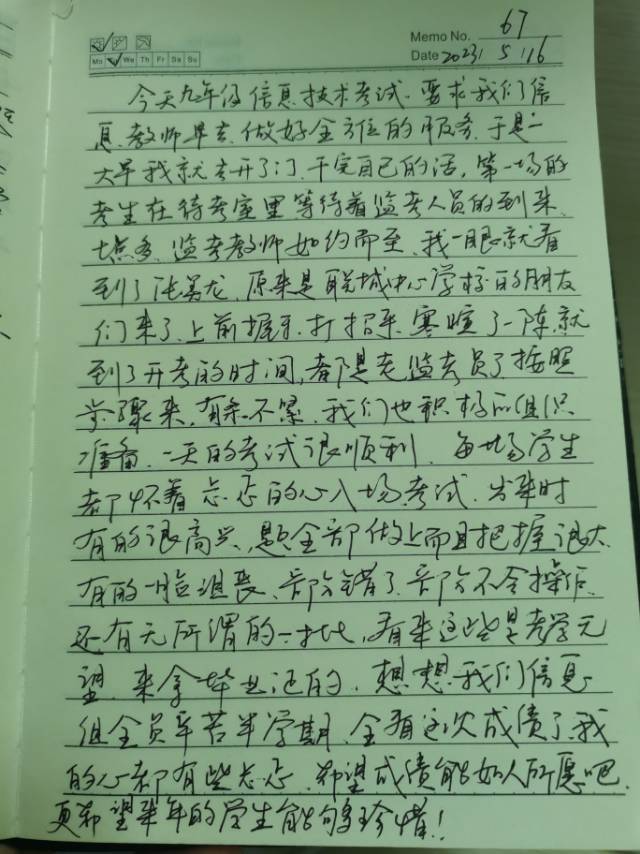 Memo No. 67
Mo We Th Fr Sa Su
Date 2023 5 16
今天九年级信息技术考试.要求我们信
息教师早去.做好全方位的服务.于是一
大早我就去开了门.干完自己的活,第一场的
考生在待考室里等待着监考人员的到来.
监考教师如约而至.我一眼就看
到了张美龙.原来是联城中心学校的朋友
们来了.上前握手.打招呼.寒暄了一阵.就
到了开考的时间,都是老监考员了按照
步骤来,有条不紊.我们也积极的组织
准备.一天的考试很顺利.每场学生
都怀着忐忑的心入场考试.出来时
有的很高兴,题全部做上而且把握很大.
有的一脸沮丧、部分错了、部分不会操作.
还有无所谓的一批,看来这些是考学无
望.来拿毕业证的.想想我们信息
组全员辛苦半学期.全看这次成绩了.我
的心都有些忐忑.希望成绩能如人所愿吧.
更希望来年的学生能够珍惜!